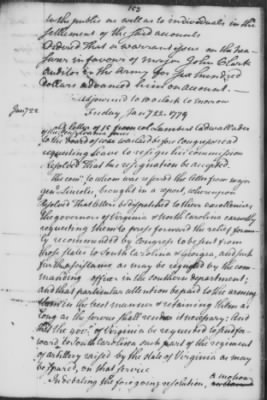 153
to the public as well as to individuals in the
settlement of the said accounts
Ordered That a warrant issue on the trea-
surer in favour of major John Clark
auditor in the army for six hundred
dollars advanced him on account.—
Adjourned to 10 oClock to morrow
Jan 22 Friday, Jan 22. 1779
A letter of 15 from col Lambert Cadwallader
to the board of war was laid before congress
requesting leave to resign his commission
resolved That his resignation be accepted.
The comee to whom was referred the letter from major
genl Lincoln, brought in a report, whereupon
resolved That letters be dispatched to their excellencies
the governors of Virginia & North Carolina earnestly
requesting them to press forward the relief former-
ly recommended by Congress to be sent from
those states to South Carolina & Georgia, and such
further supplies as may be required by the com-
manding officer in the southern department;
and that particular attention be paid to the arming
them in the best manner & retaining them as
long as the service shall render it necessary: And
that the govr of Virginia be requested to send for-
ward to South Carolina such part of the regiment
of artillery raised by the state of Virginia as may
be spared, on that service
In debating the foregoing resolution, a motion